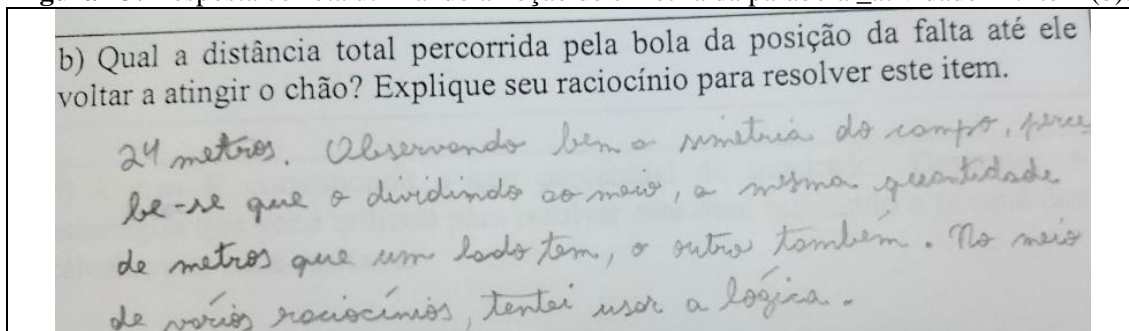 b) Qual a distância total percorrida pela bola da posição da falta até ele
voltar a atingir o chão? Explique seu raciocínio para resolver este item.
24 metros. Observando bem a simetria do campo, perce
be-se que o dividindo ao meio, a mesma quantidade
de metros que um lado tem, o outro também. No meio
de varios raciocínios, tentei usar a lógica.